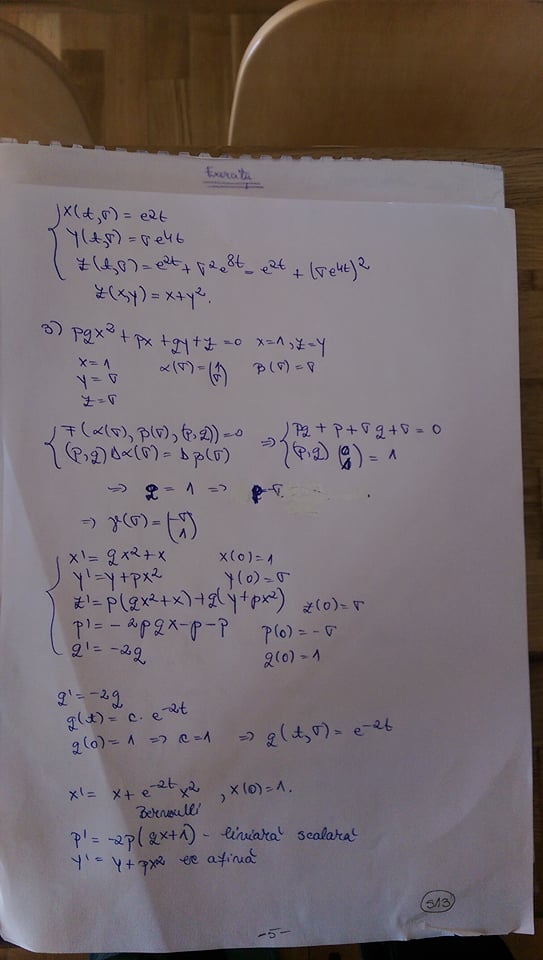 Exerciții
x(t,σ) = e^2t
y(t,σ) = σe^4t
z(t,σ) = e^2t + σ^2 e^8t = e^2t + (σe^4t)^2
z(x,y) = x+y^2.
3) pqx^2 + px + qy + z = 0 x=1, z=y
x=1 α(σ) = (1 σ) β(σ) = σ
y=σ
z=σ
F(α(σ), β(σ), (p,q)) = 0 ⇒ pq + p + σq + σ = 0
(p,q) Δα(σ) = Δβ(σ) (p,q) (0 1) = 1
⇒ q = 1 ⇒ p -σ
⇒ γ(σ) = (-σ 1)
x' = qx^2 + x x(0) = 1
y' = y + px^2 y(0) = σ
z' = p(qx^2+x) + q(y+px^2) z(0) = σ
p' = -2pqx - p - p p(0) = -σ
q' = -2q q(0) = 1
q' = -2q
q(t) = c · e^-2t
q(0) = 1 ⇒ c = 1 ⇒ q(t,σ) = e^-2t
x' = x + e^-2t x^2, x(0) = 1.
Bernoulli
p' = -2p(qx+1) - liniară scalară
y' = y + px^2 ec afină
513
-5-